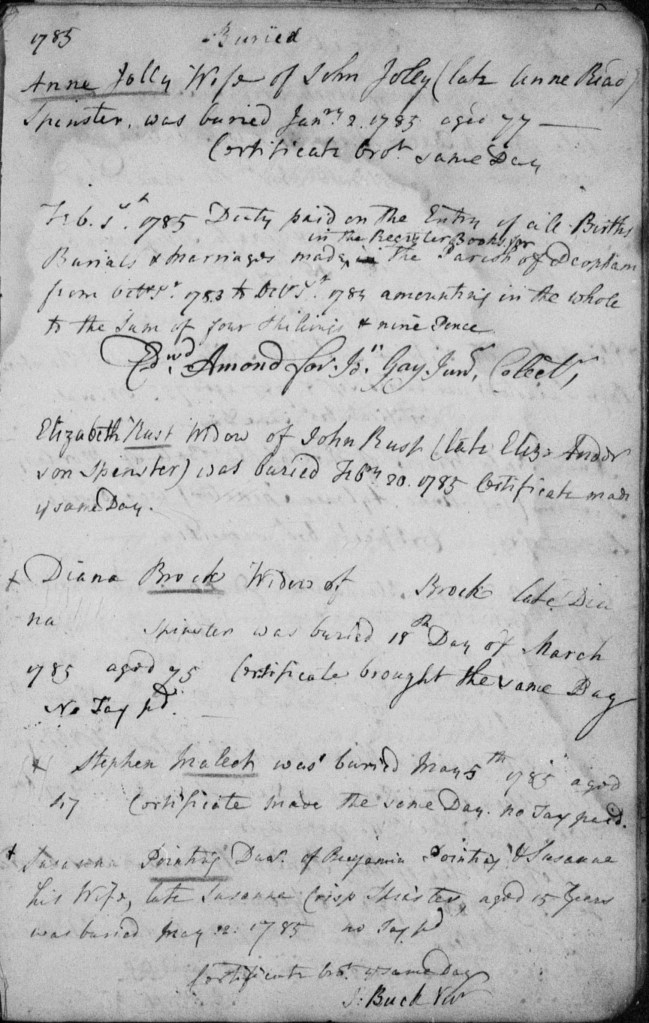 1785 Buried
Anne Jolly Wife of John Joley (late Anne Read)
Spinster. was buried Janry 2. 1785 aged 77
Certificate brot. same Day
Feb. 1st. 1785 Duty paid on the Entry of all Births
in the Register Books for
Burials & Marriages made the Parish of Deopham
from Octr 1st. 1783 to Octr 1st. 1784 amounting in the whole
to the Sum of four Shillings & nine Pence
Edwd Amond for Js. Gay Junr, Colectr,
Elizabeth Rust Widow of John Rust (late Eliza Ander
son Spinster) was buried Febry 20. 1785 Certificate made
ye same Day.
+ Diana Brock Widow of Brock late Dia
na Spinster was buried 18th Day of March
1785 aged 75 Certificate brought the same Day
No Tax pd.
+ Stephen was buried May 5th 1785 aged
Certificate made the same Day. no Tax paid.
+ Susanna Pointing Daur. of Benjamin Pointing & Susanna
his Wife, late Susanna Crisp Spinster, aged 15 Years
was buried May 22. 1785 no Tax pd
Certificate brt. ye same Day
S. Buck Vir